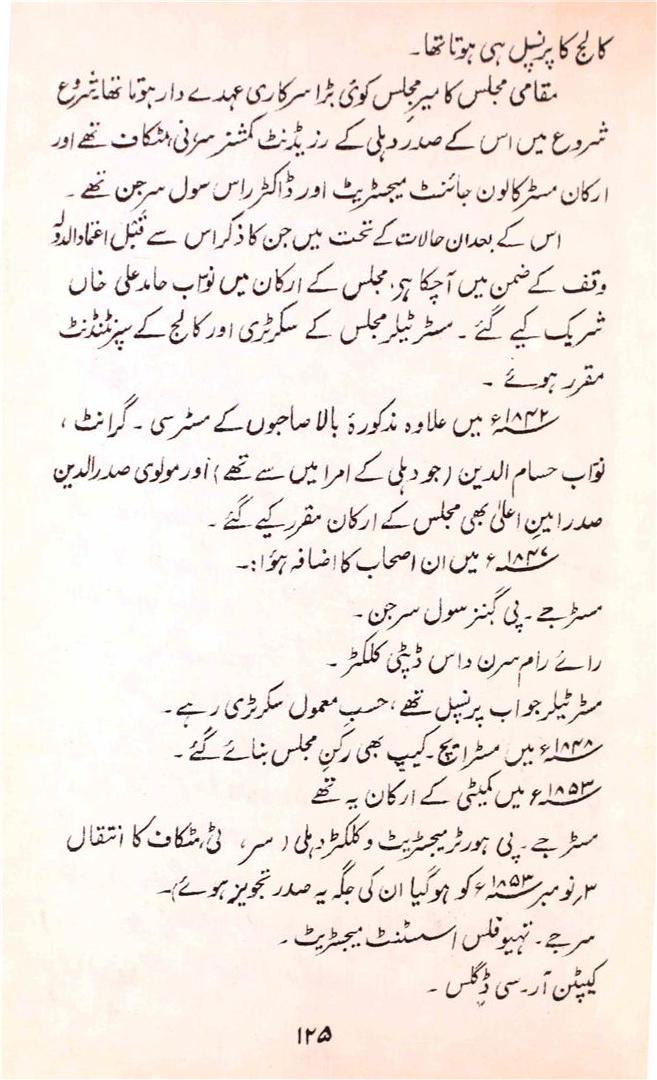 کالج کا پرنسپل ہی ہوتا تھا۔
مقامی مجلس کا میرِ مجلس کوئی بڑا سرکاری عہدے دار ہوتا تھا شروع
شروع میں اس کے صدر دہلی کے رزیڈنٹ کمشنر سر ٹی مٹکاف تھے اور
ارکان مسٹر کالون جائنٹ میجسٹریٹ اور ڈاکٹر راس سول سرجن تھے۔
اس کے بعد ان حالات کے تحت میں جن کا ذکر اس سے قبل اعتماد الدولہ
وقف کے ضمن میں آچکا ہی، مجلس کے ارکان میں نواب حامد علی خاں
شریک کیے گئے۔ مسٹر ٹیلر مجلس کے سکرٹری اور کالج کے سپرنٹنڈنٹ
مقرر ہوئے۔
۱۸۴۲ء میں علاوہ مذکورۂ بالا صاحبوں کے مسٹر سی۔ گرانٹ،
نواب حسام الدین (جو دہلی کے امرا میں سے تھے) اور مولوی صدر الدین
صدر امینِ اعلیٰ بھی مجلس کے ارکان مقرر کیے گئے۔
۱۸۴۷ء میں ان اصحاب کا اضافہ ہؤا:۔
مسٹر جے۔ پی گبنز سول سرجن۔
رائے رام سرن داس ڈپٹی کلکٹر۔
مسٹر ٹیلر جو اب پرنسپل تھے، حسبِ معمول سکرٹری رہے۔
۱۸۴۸ء میں مسٹر ایچ۔ کیپ بھی رکنِ مجلس بنائے گئے۔
۱۸۵۳ء میں کمیٹی کے ارکان یہ تھے
مسٹر جے۔ پی ہورٹر میجسٹریٹ و کلکٹر دہلی (سر، ٹی، مٹکاف کا انتقال
۳؍نومبر ۱۸۵۳ء کو ہوگیا ان کی جگہ یہ صدر تجویز ہوئے)۔
سر جے۔ تھیوفلس اسسٹنٹ میجسٹریٹ۔
کیپٹن آر۔ سی ڈگلس۔
۱۲۵